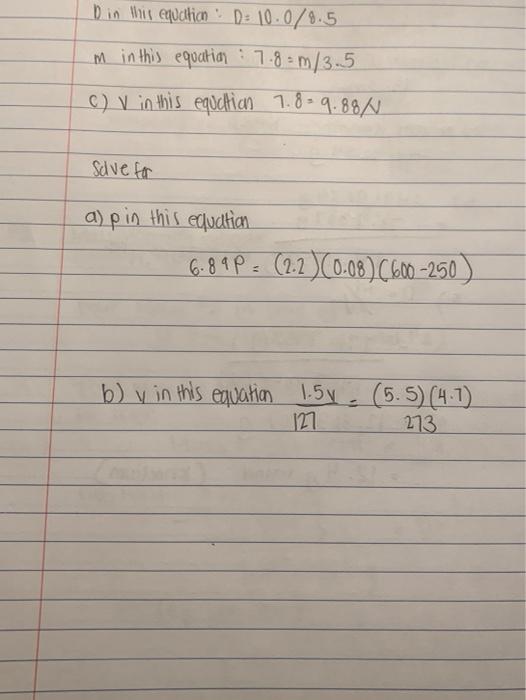 D in this equation : D = 10.0/8.5
m in this equation : 7.8 = m/3.5
c) V in this equation 7.8 = 9.88/V
Solve for
a) p in this equation
6.89P = (2.2)(0.08)(600-250)
b) v in this equation 1.5v/127 = (5.5)(4.7)/273